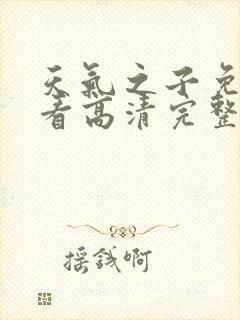 天氣之子免
看高清完整
採錢啊